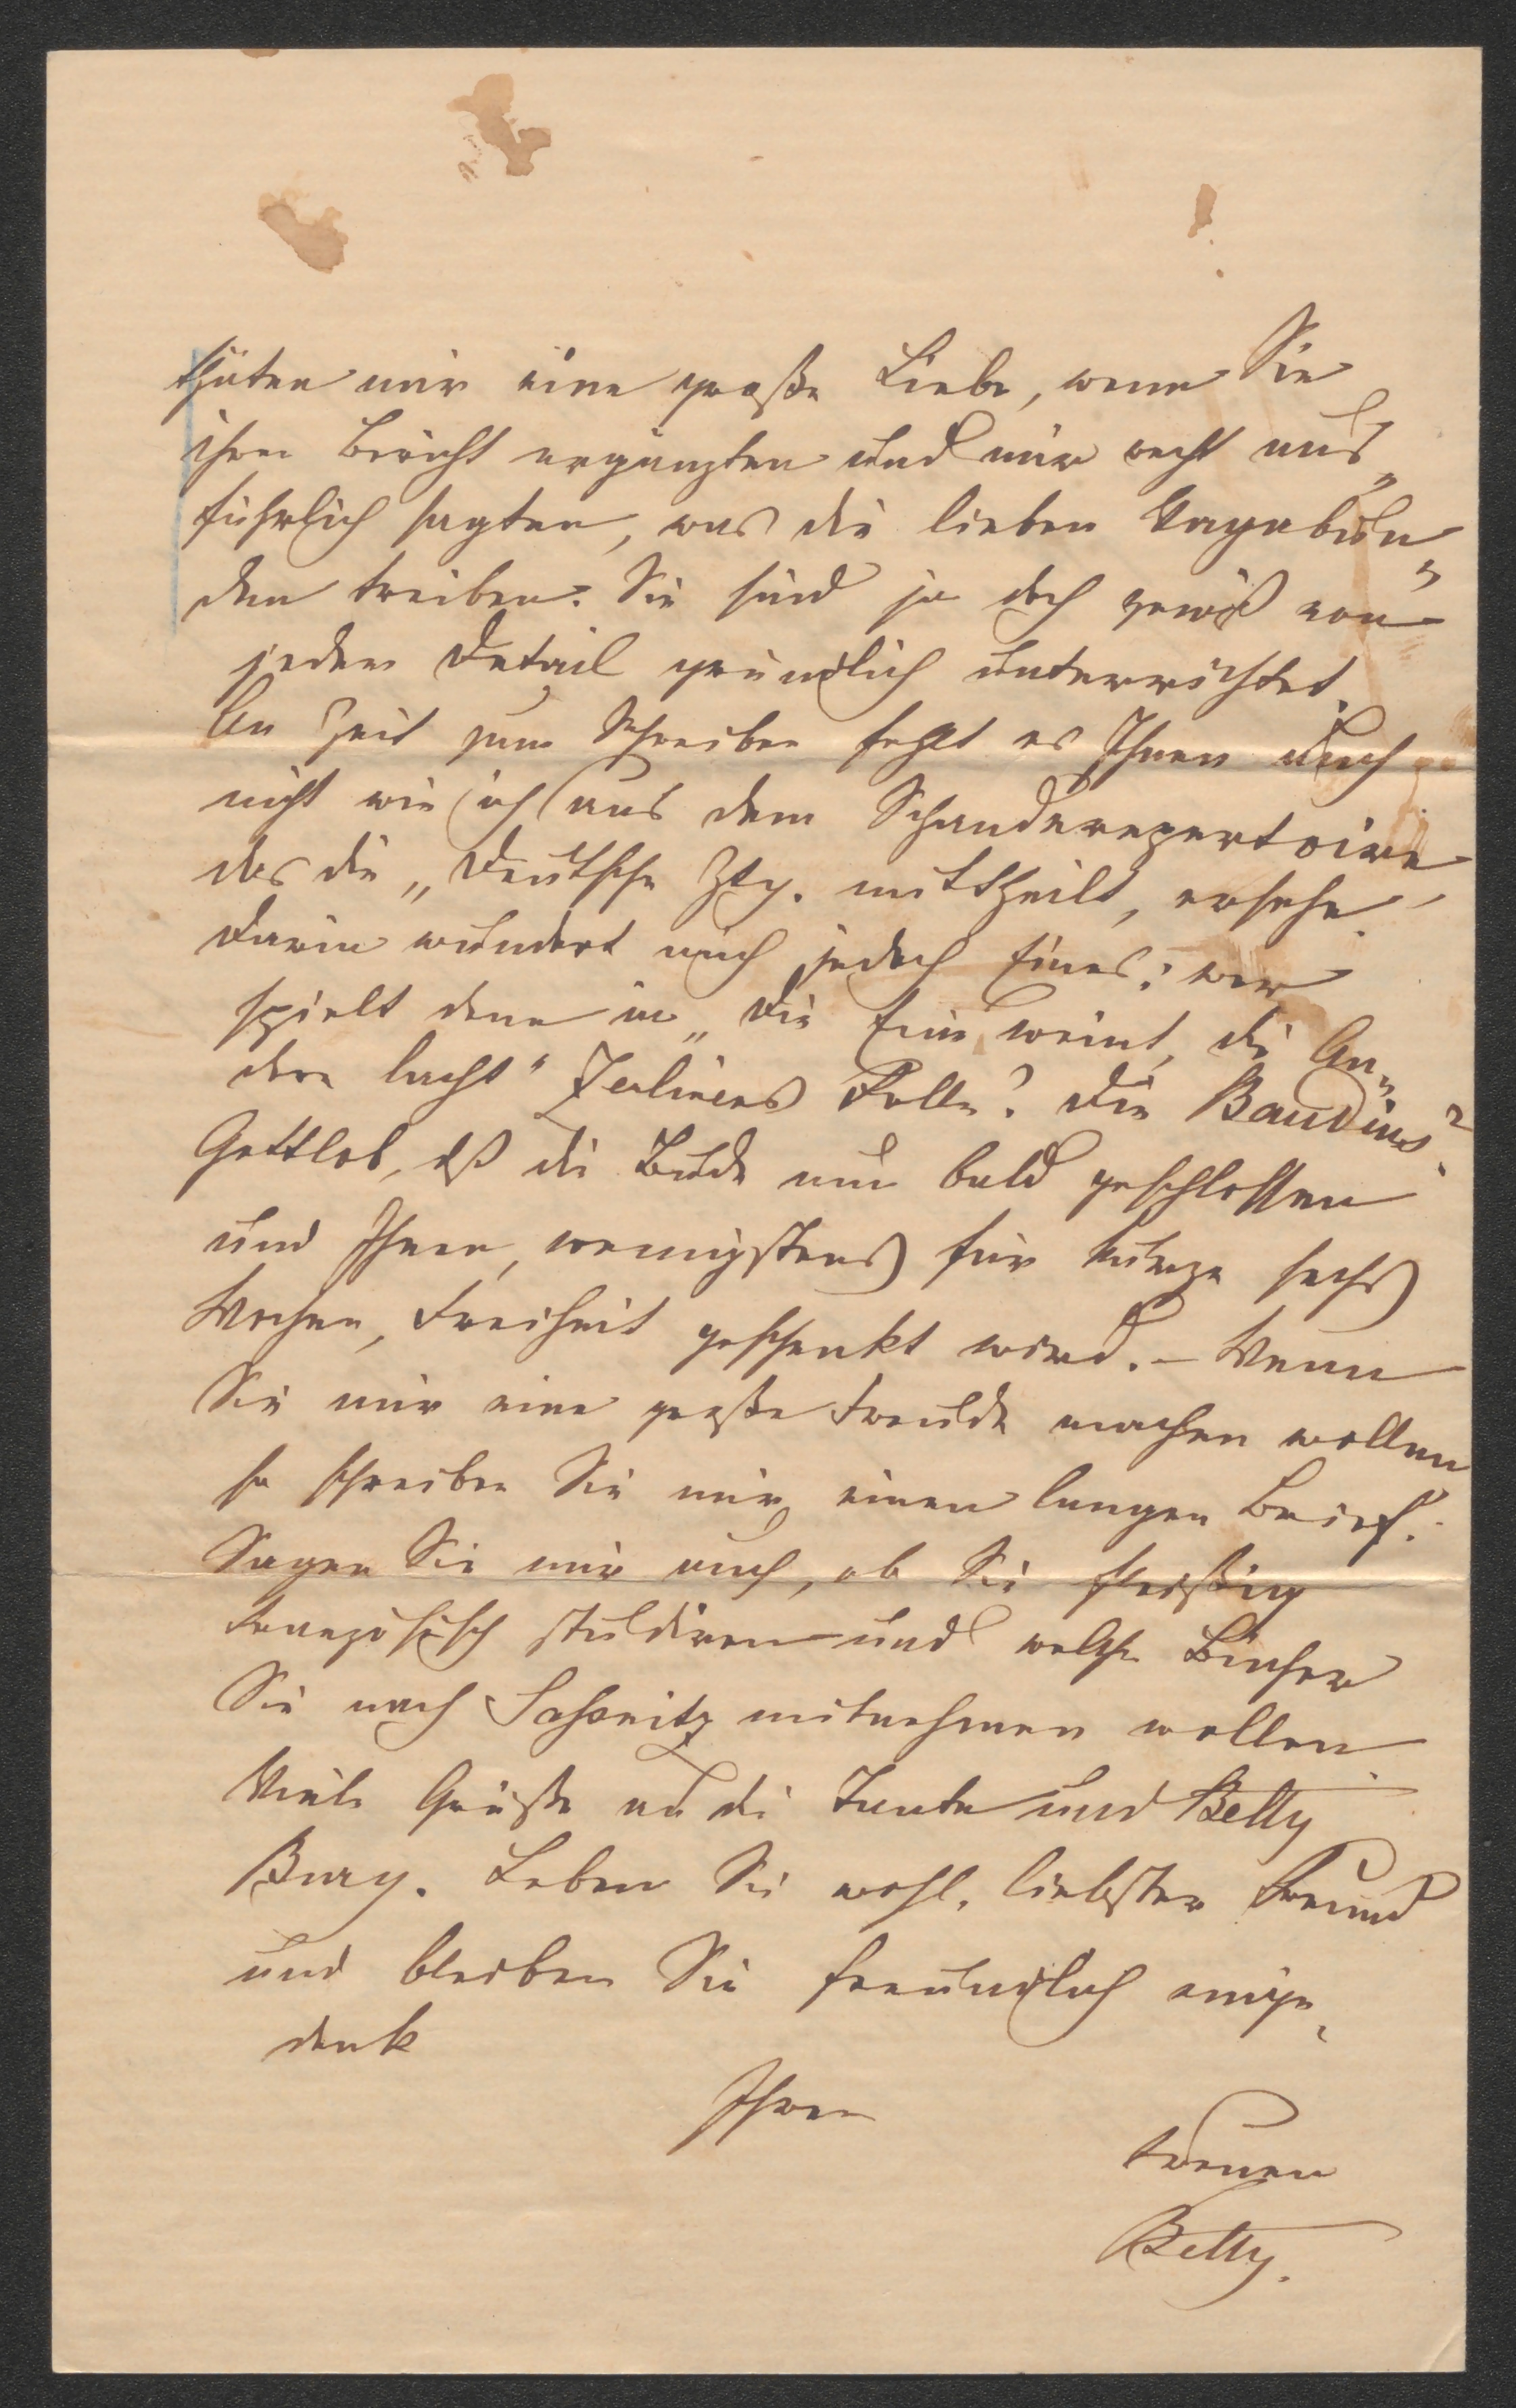 thäten mir eine große Liebe, wenn Sie
ihren Bericht ergänzten und mir recht aus„
führlich sagten, was die lieben Vagabun„
den treiben. Sie sind ja doch gewiß von
jedem Detail gründlich unterrichtet.
An Zeit zum Schreiben fehlt es Ihnen auch
nicht wie ich aus dem Schanderepertoire
das die „Deutsche Ztg. mittheilt, ersehe.
Darin wundert mich jedoch Eines: wer
spielt denn in „Die Eine weint, die An„
dere lacht" Rolle? Die Baudius?
Gottlob, dß die Bude nun bald geschlossen
und Ihnen, wenigstens für kurze sechs
Wochen, Freiheit geschenkt wird. – Wenn
Sie mir eine große Freude machen wollen
so schreiben Sie mir einen langen Brief.
Sagen Sie mir auch, ob Sie fleißig
französisch studiren und welche Bücher
Sie nach Saßnitz mitnehmen wollen.
Viele Grüße an die Tante und Betty
Burg. Leben Sie wohl, liebster Freund
und bleiben Sie freundlich einge„
denk
Ihrer
treuen
Betty.